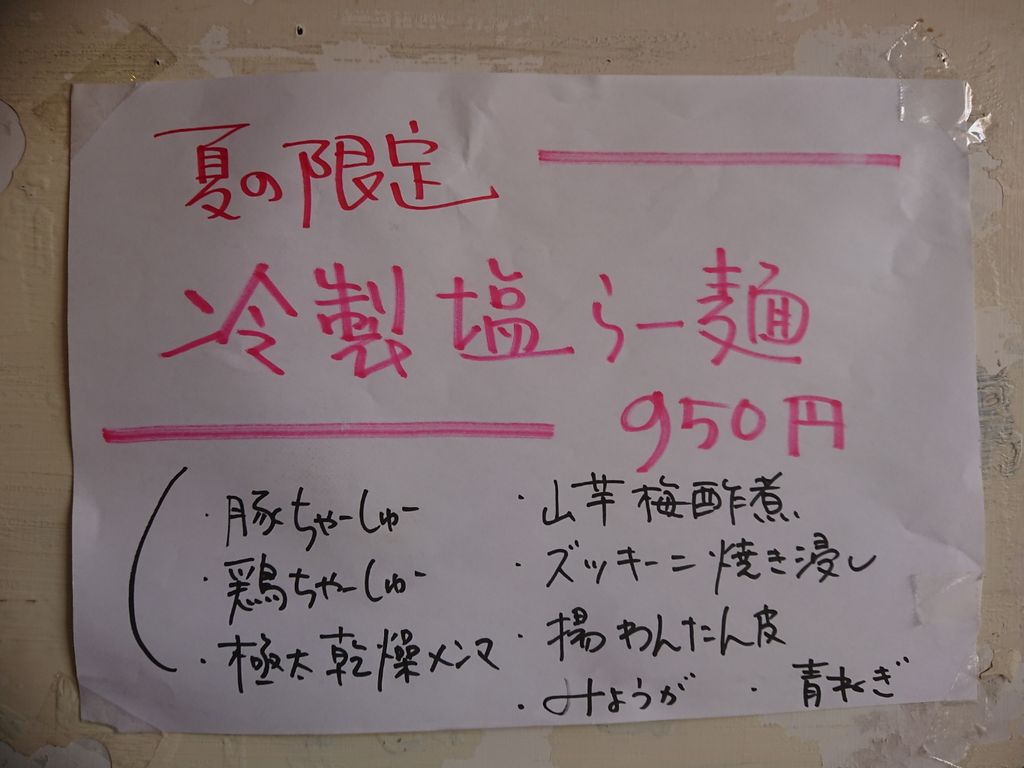 夏の限定
冷製塩らー麺
950円
・豚ちゃーしゅー
・鶏ちゃーしゅー
・極太乾燥メンマ
・山芋梅酢煮
・ズッキーニ焼き浸し
・揚わんたん皮
・みょうが ・青ねぎ